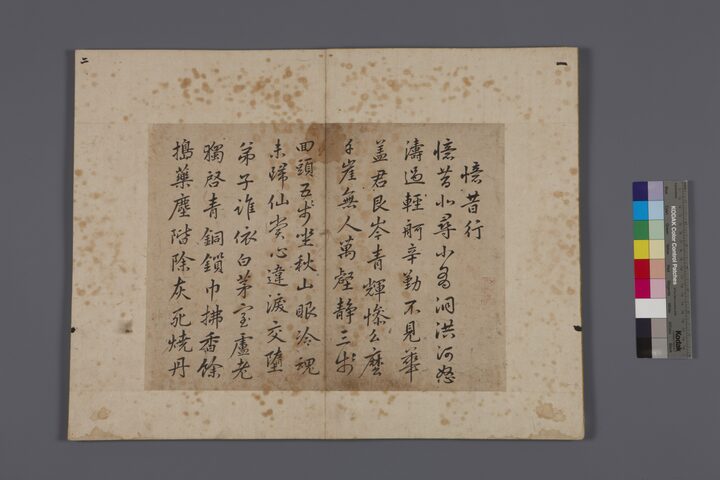 一
憶昔行
憶昔北尋小有洞洪河怒
濤過輕舸辛勤不見華
盖君艮岑青輝慘么麼
千崖無人萬壑静三步
回頭五步坐秋山眼冷魂
未歸仙赏心違淚交墮
弟子誰依白茅室盧老
獨啓青銅鎖巾拂香餘
搗藥塵階除灰死燒丹
二
KODAK Color Control Patches
Kodak